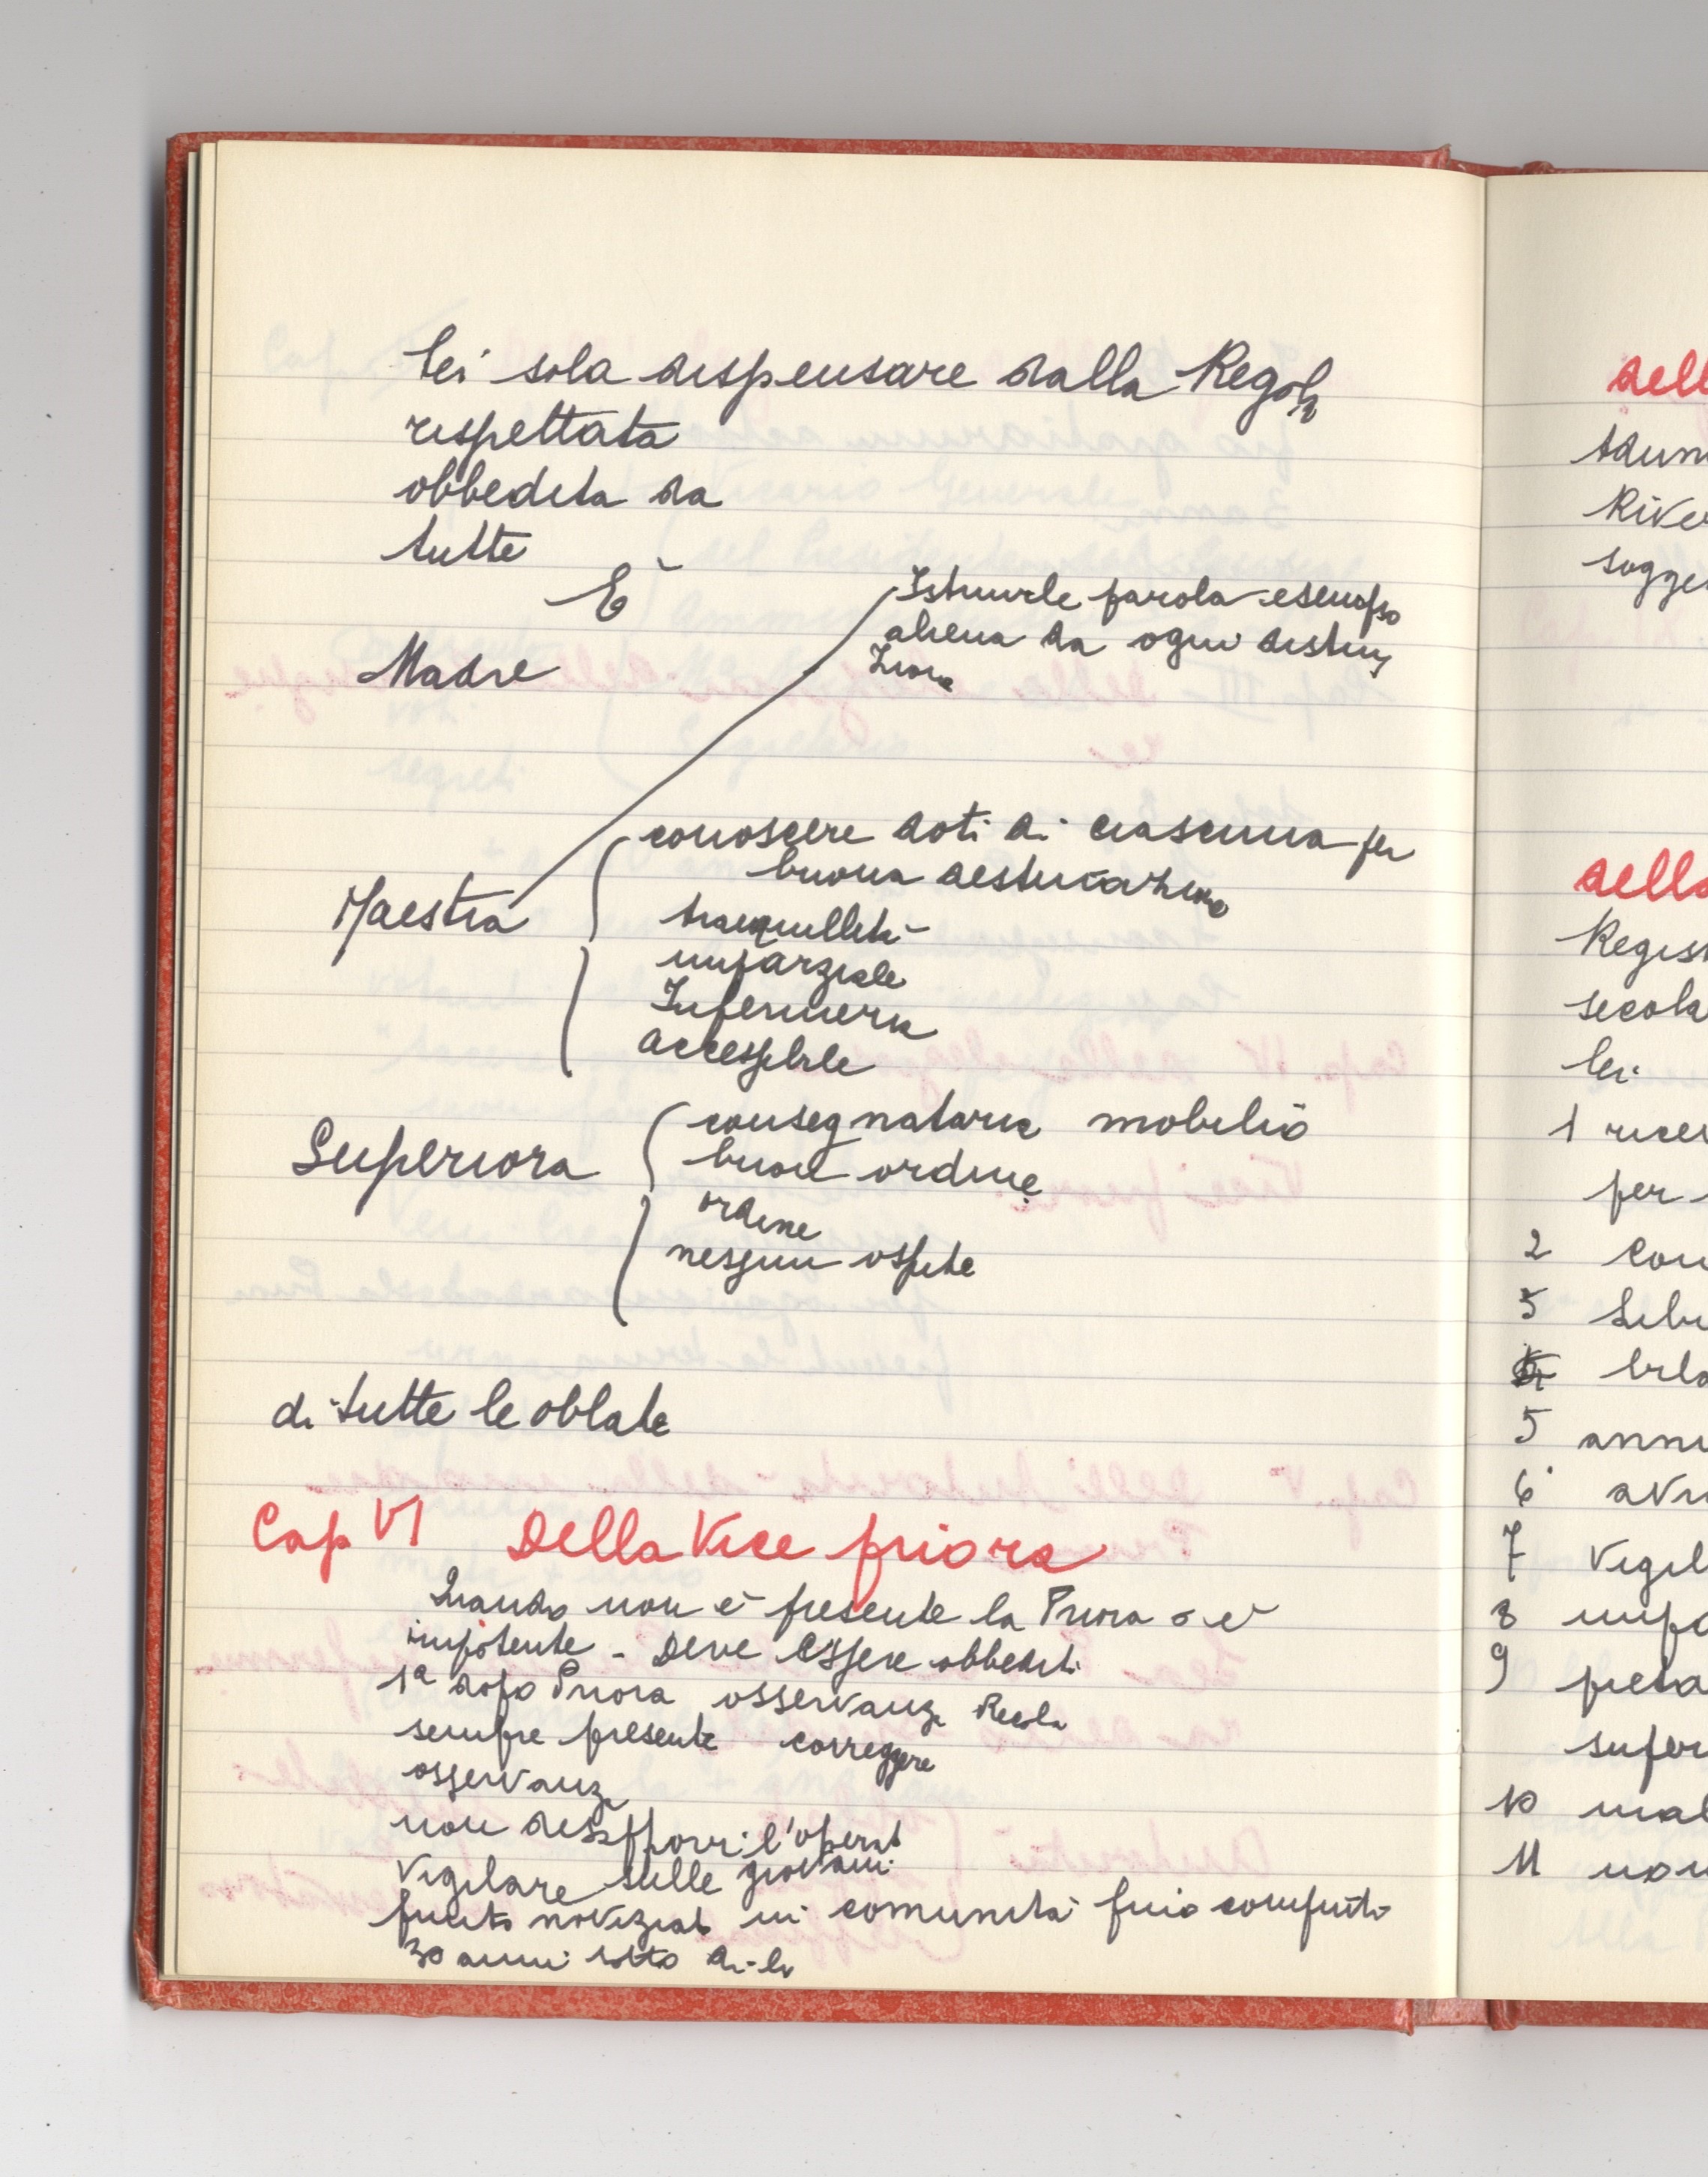 lei sola dispensare dalla Regola
rispettata
obbedita da
tutte
È
Istruirle parola esempio
aliena da ogni distin
zione
Madre
conoscere doti di ciascuna per
buona destinazione
Maestra
tranquillità
imparziale
Infermiera
accessibile
consegnataria mobilio
Superiora
buon ordine
ordine
nessun ospite
di tutte le oblate
Cap VI Della Vice priora
Quando non è presente la Priora o è
impotente - Deve essere obbedita
1ª dopo Priora osservanza Regola
sempre presente correggere
osservanza
non l'operato
Vigilare sulle giovani
finito noviziato in comunità fino compiuto
30 anni sotto di lei
dell
Adun
River
sogge
della
Regis
secola
lei
1 ricev
per
2 Con
3 Libr
5 annu
6 avv
7 Vigil
8 impo
9 pieta
super
10 mal
11 non